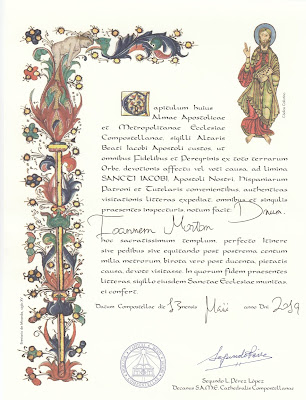 Capitulum huius
Almae Apostolicae
et Metropolitanae Ecclesiae
Compostellanae, sigilli Altaris
Beati Iacobi Apostoli custos, ut
omnibus Fidelibus et Peregrinis ex toto terrarum
Orbe, devotionis affectu vel voti causa, ad limina
SANCTI IACOBI, Apostoli Nostri, Hispaniarum
Patroni et Tutelaris convenientibus, authenticas
visitationis litteras expediat, omnibus et singulis
praesentes inspecturis, notum facit: Dnum
Ioannem Morton
hoc sacratissimum templum, perfecto Itinere
sive pedibus sive equitando post postrema centum
milia metrorum, birota vero post ducenta, pietatis
causa, devote visitasse. In quorum fidem praesentes
litteras, sigillo eiusdem Sanctae Ecclesiae munitas
ei confert.
Datum Compostellae die 13 mensis Maii anno Dni 2019
Segundo L. Pérez López
Decanus S.A.M.E. Cathedralis Compostellanae